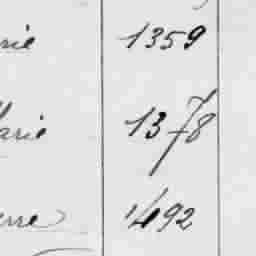 rie 1359
arie 1378
erre 1492